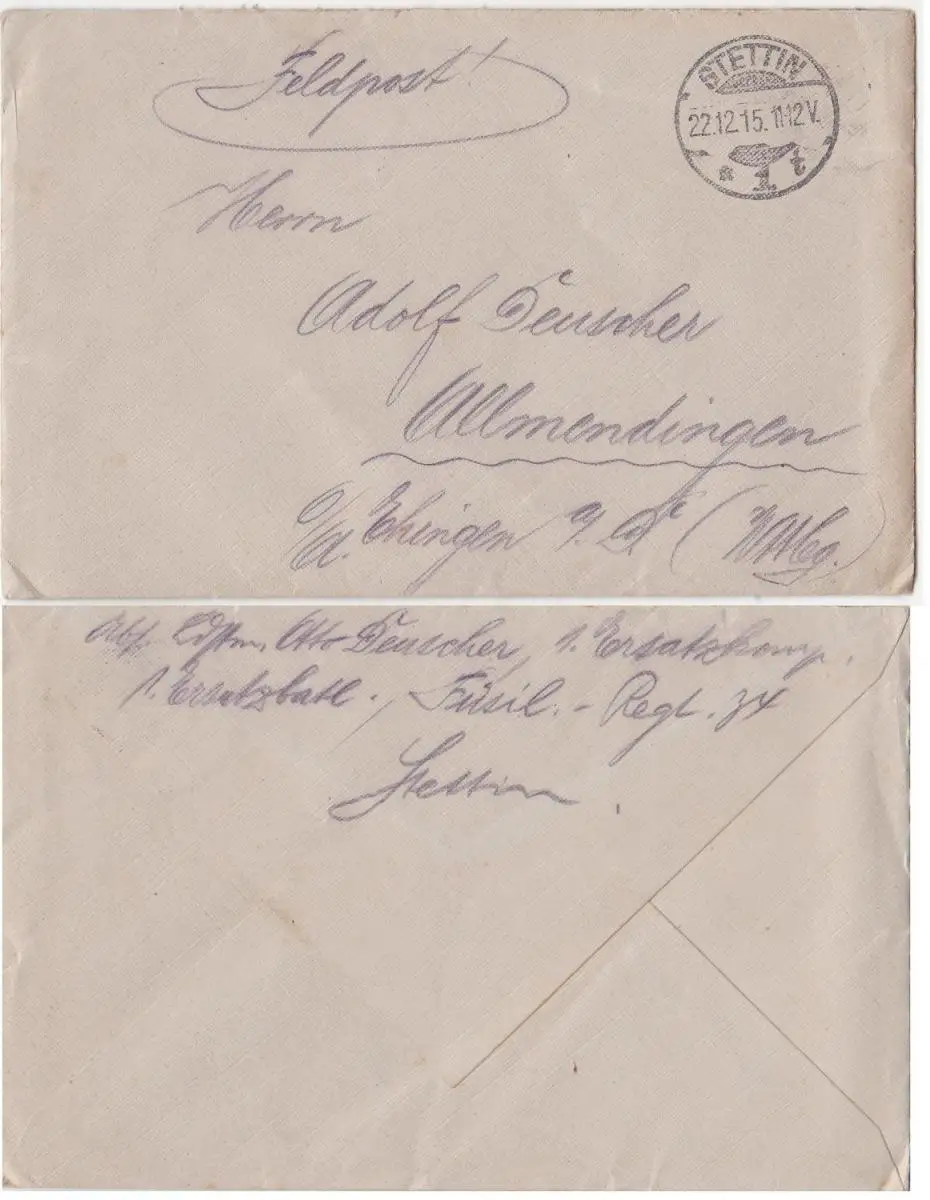 Feldpost!
STETTIN
22.12.15. 11-12 V.
* 1. t
Herrn
Adolf Deuscher
Allmendingen
O/A. Ehingen a/D (Wttbg.)
Abs. Ldstm. Otto Deuscher, 1. Ersatzkomp.
1. Ersatzbatl., Füsil.-Regt. 34
Stettin.